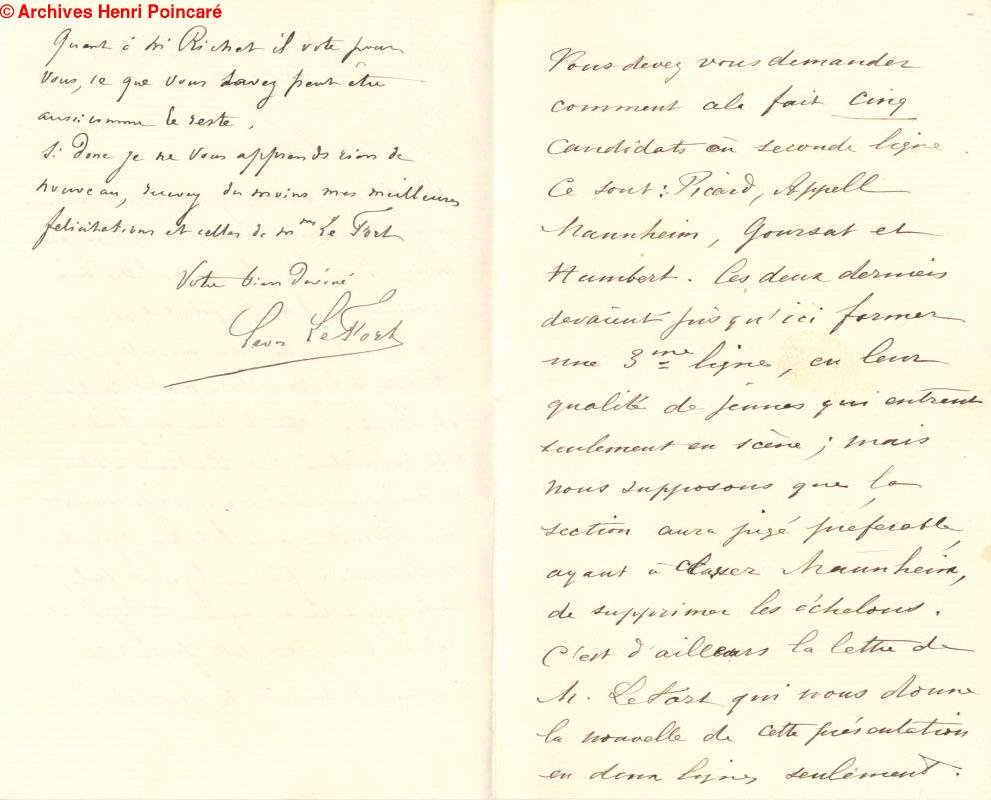 © Archives Henri Poincaré
Quant à Mr Richet il vote pour
vous, ce que vous savez peut être
aussi comme le reste.
Si donc je ne vous apprends rien de
nouveau, recevez du moins mes meilleures
felicitations et celles de Mme Le Fort
Votre bien dévoué
Leon Le Fort
Vous devez vous demander
comment cela fait cinq
candidats en seconde ligne.
Ce sont : Picard, Appell
Mannheim, Goursat et
Humbert. Ces deux derniers
devaient jusqu'ici former
une 3me ligne, en leur
qualité de jeunes qui entrent
seulement en scène ; mais
nous supposons que la
section aura jugé préférable,
ayant à classer Mannheim,
de supprimer les échelons.
C'est d'ailleurs la lettre de
M. Le Fort qui nous donne
la nouvelle de cette présentation
en deux lignes seulement.